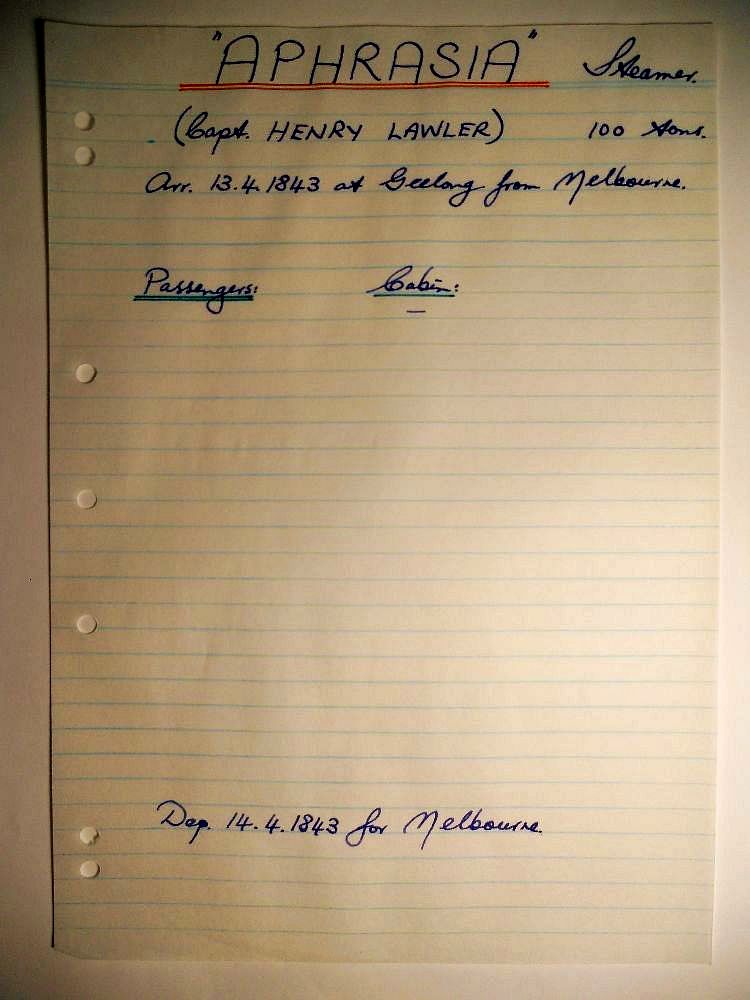 "APHRASIA" Steamer.
(Capt. HENRY LAWLER) 100 tons.
Arr. 13.4.1843 at Geelong from Melbourne.
Passengers: Cabin:
—
Dep. 14.4.1843 for Melbourne.